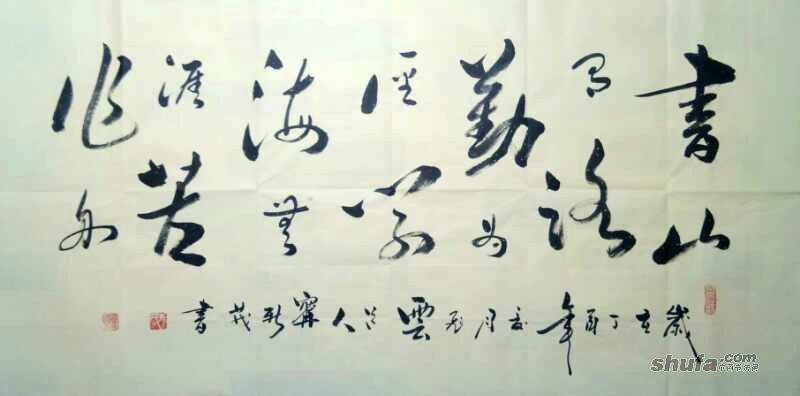 書山
有路
勤為
径學
海無
涯苦
作舟
歲在丁酉年夏月雲人書
shufa.com